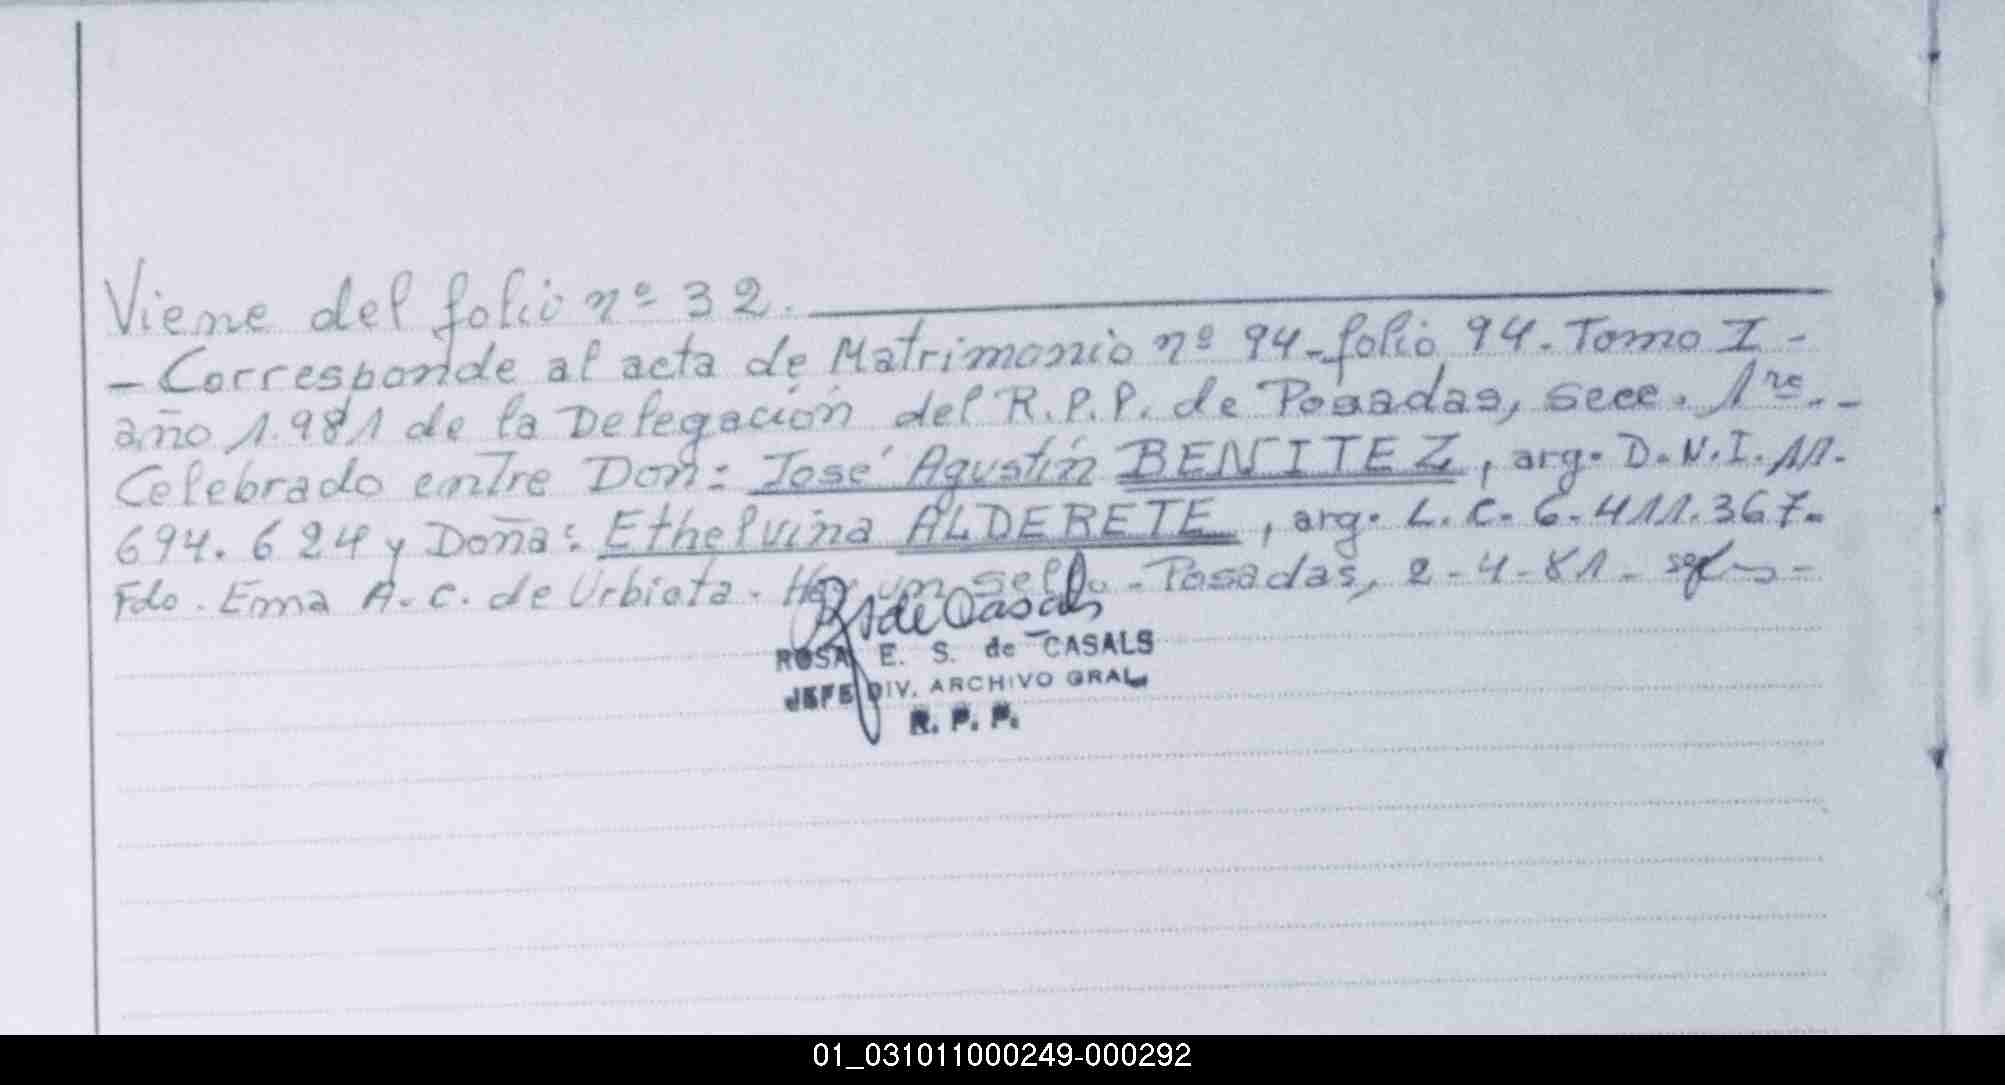 Viene del folio nº 32.
- Corresponde al acta de Matrimonio nº 94 - folio 94. Tomo I -
año 1.981 de la Delegación del R.P.P. de Posadas, secc. 1ra. -
Celebrado entre Don: José Agustín BENITEZ, arg. D.N.I. 11.
694.624 y Doña: Ethelvina ALDERETE, arg. L.C. 6.411.367.
Fdo. Ema A. C. de Urbieta. Hay un sello - Posadas, 2-4-81 -
RSde Casals
ROSA E. S. de CASALS
JEFE DIV. ARCHIVO GRAL
R. P. P.
01_031011000249-000292